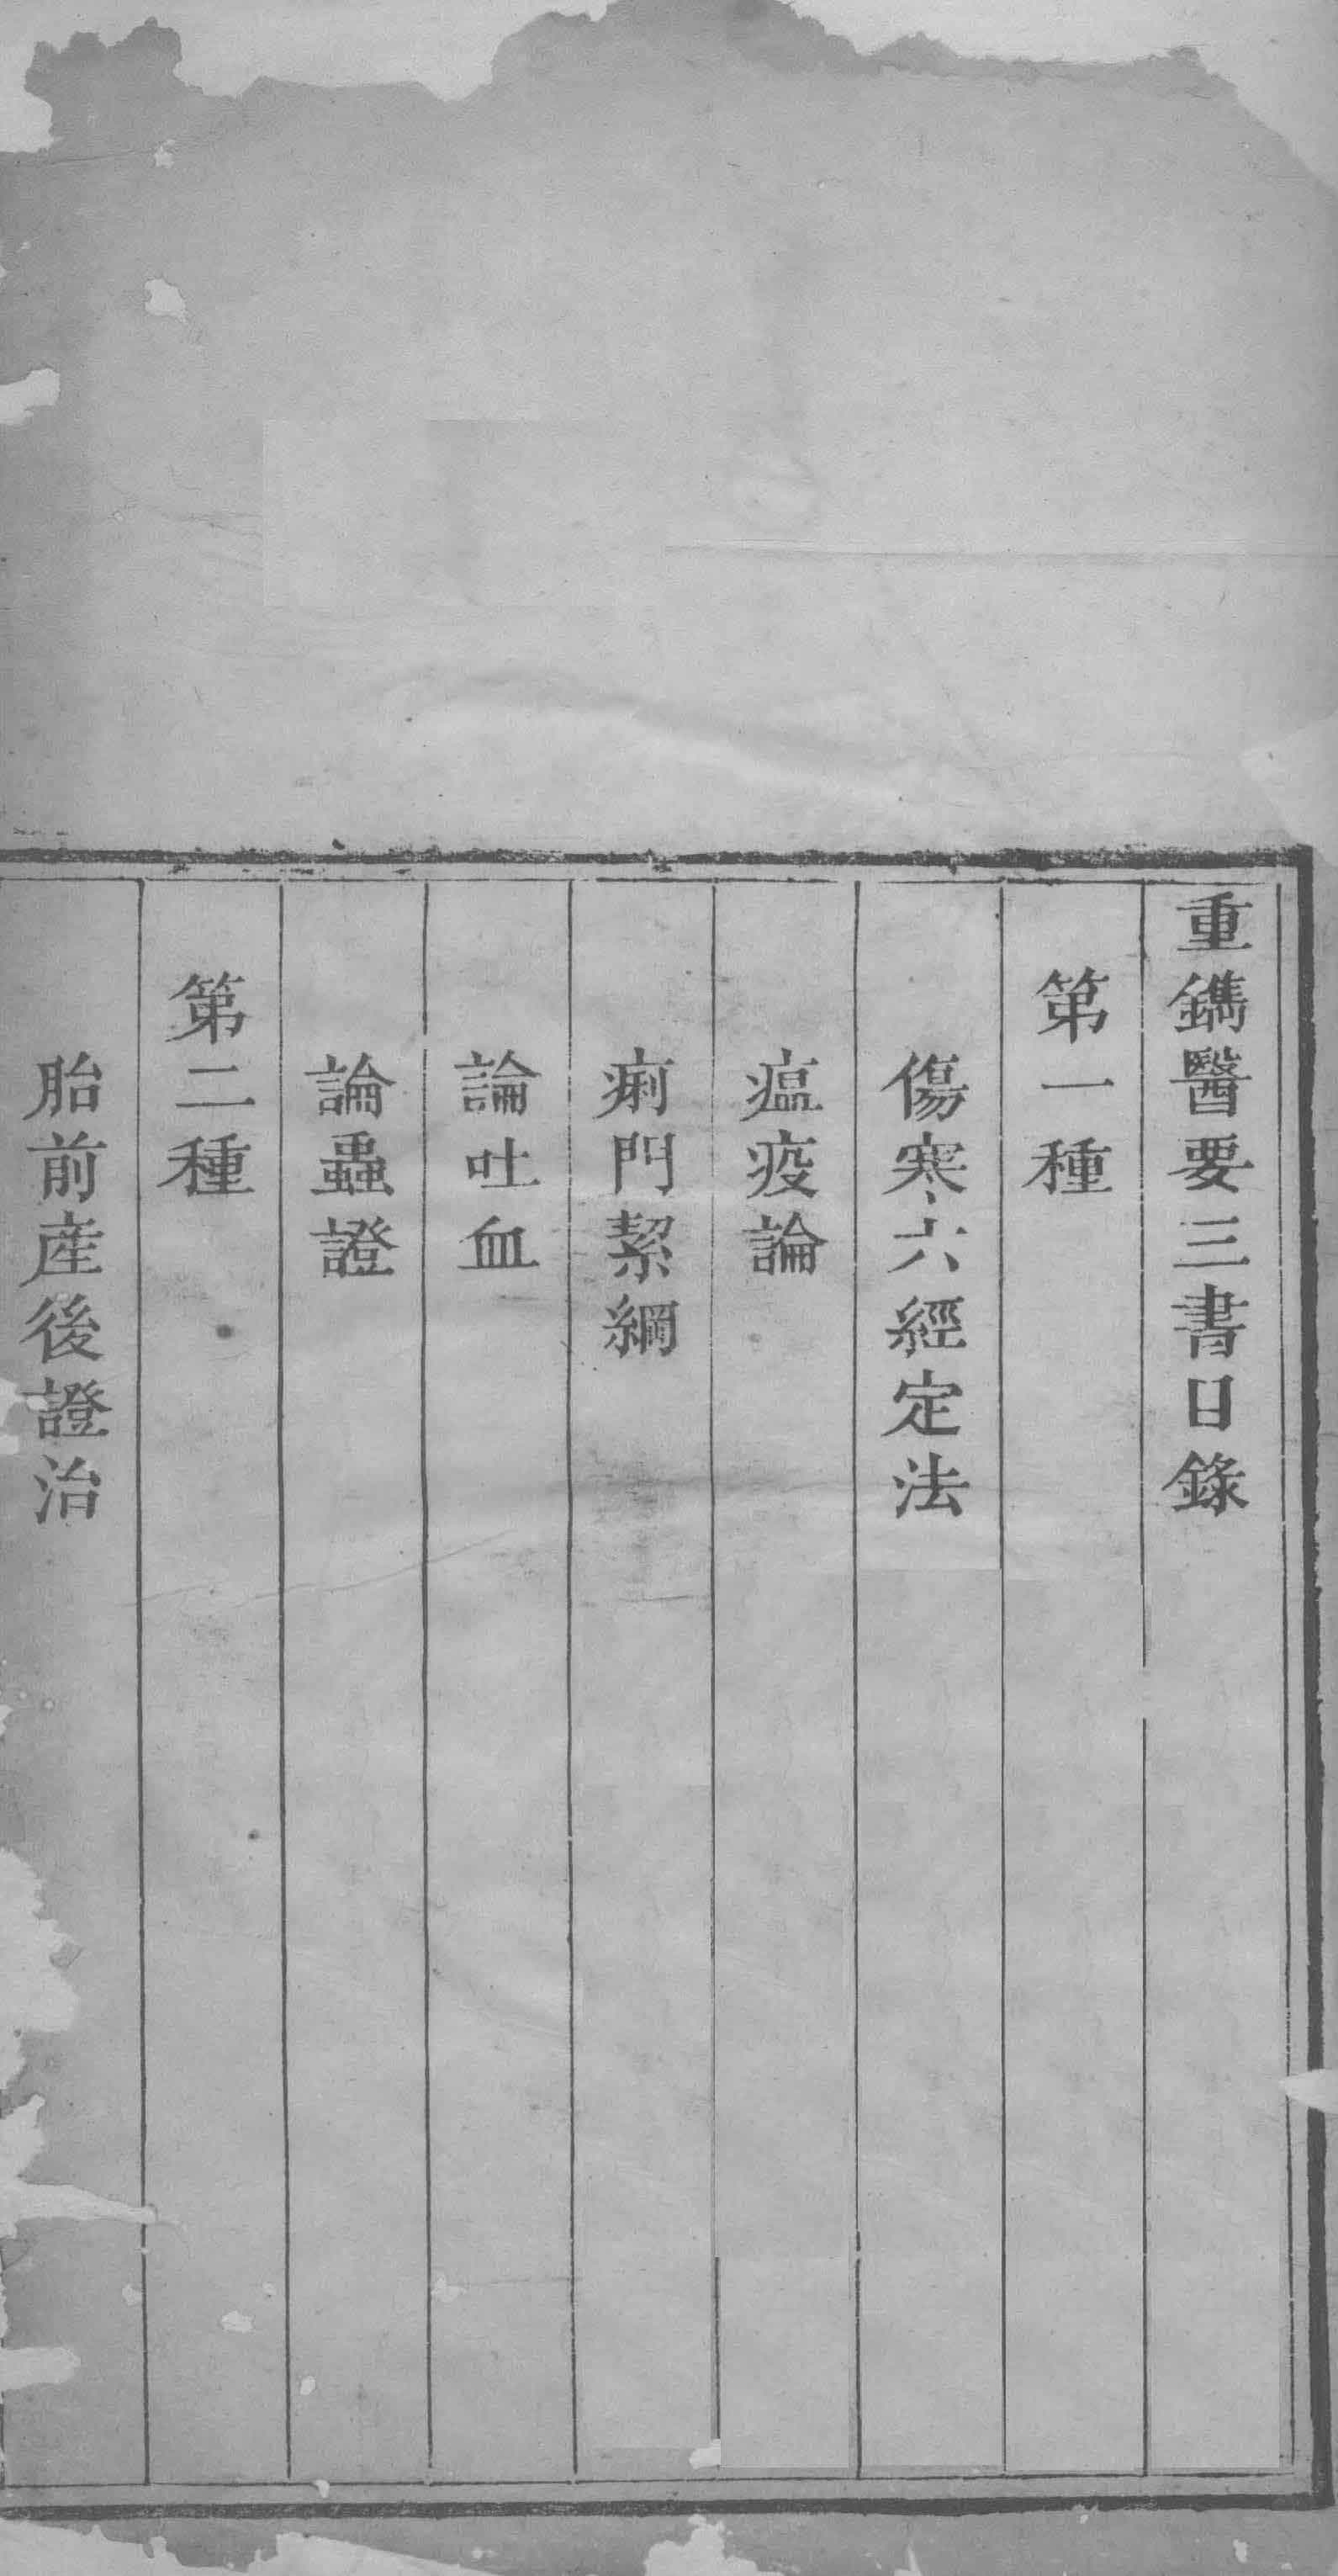 重鐫醫要三書目錄
第一種
傷寒六經定法
瘟疫論
痢門絜綱
論吐血
論蟲證
第二種
胎前產後證治